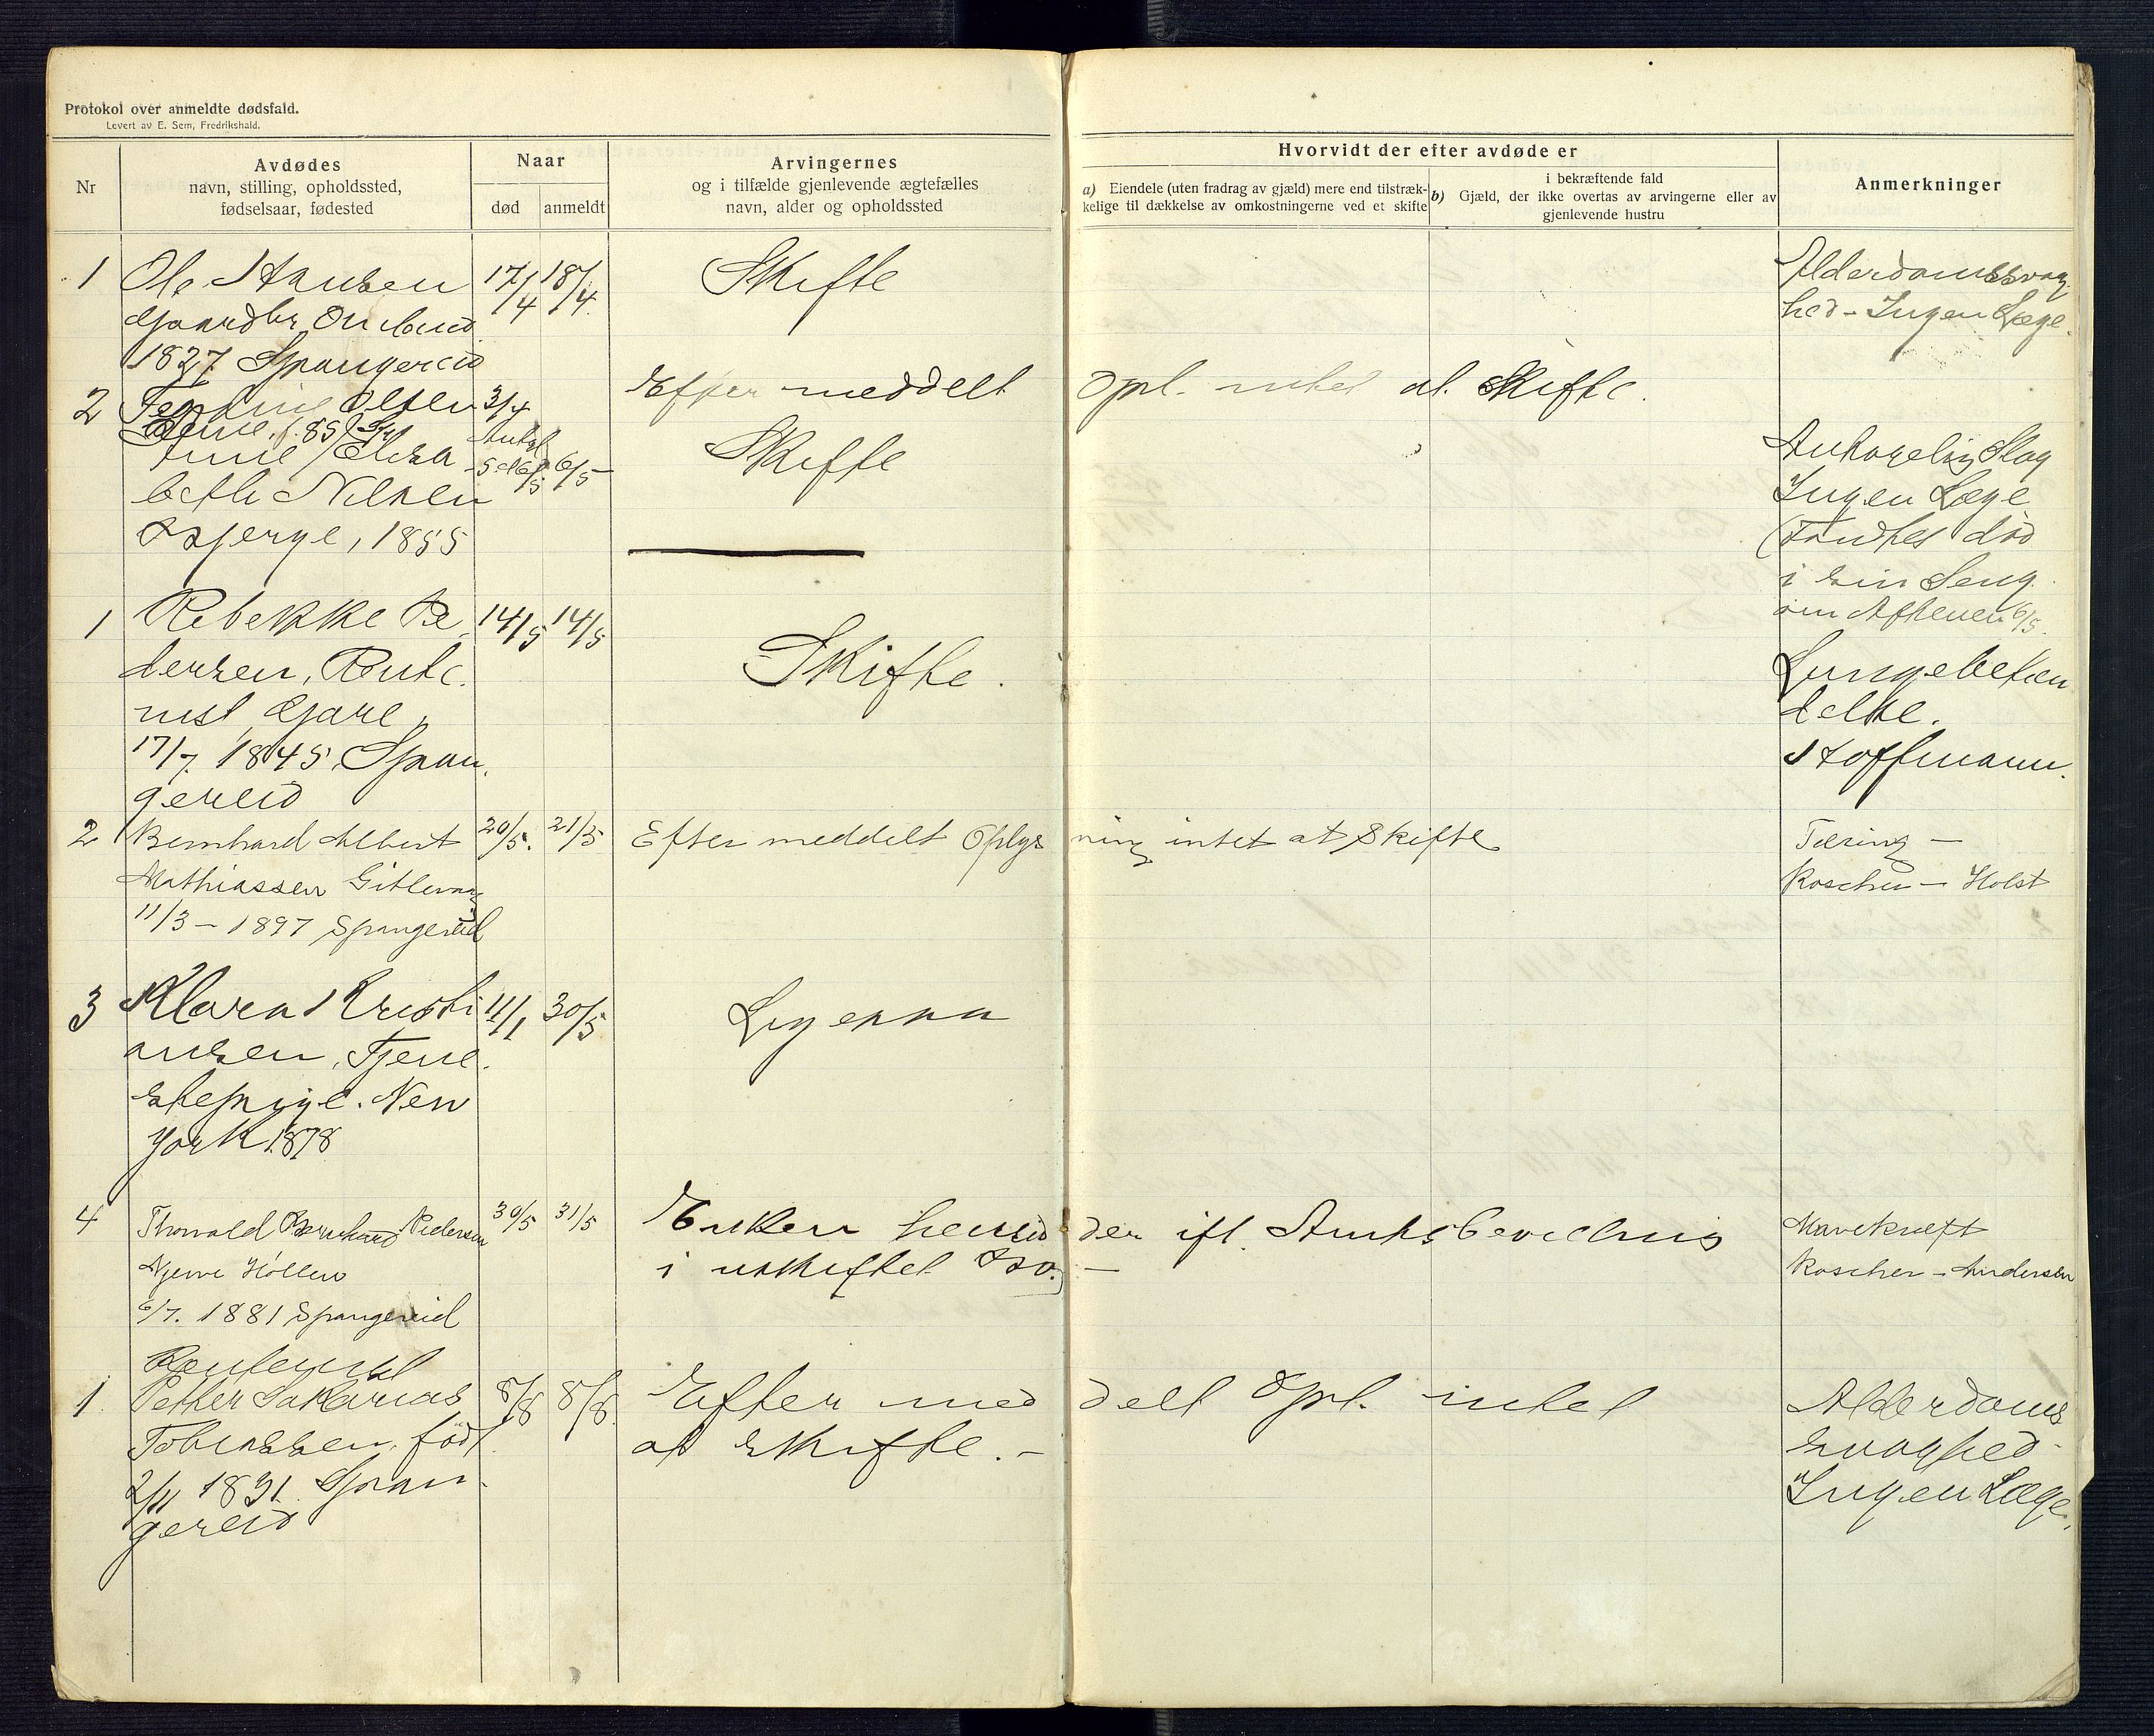 Protokol over anmeldte dødsfald.
Levert av E. Sem, Fredrikshald.
Nr
Avdødes
navn, stilling, opholdssted,
fødselsaar, fødested
Naar
død
anmeldt
Arvingernes
og i tilfælde gjenlevende ægtefælles
navn, alder og opholdssted
Hvorvidt der efter avdøde er
a) Eiendele (uten fradrag av gjæld) mere end tilstræk-
kelige til dækkelse av omkostningerne ved et skifte
i bekræftende fald
b) Gjæld, der ikke overtas av arvingerne eller av
gjenlevende hustru
Anmerkninger
1 Ole Hansen 17/4 18/4. Skifte Alderdomssvag-
Gaardbr. hed - Ingen Læge.
1827 Spangereid
2 Olsen 3/4 Efter meddelt Opl. intet at Skifte.
Elisa
beth Nilsen 5 el 6/5 6/5 Skifte Antagelig Slag
1855 Ingen Læge
(Fandtes død
i sin Seng
om Aftenen 6/5.
1 Rebekke Pe 14/5 14/5 Skifte. Lungebetæn
dersen, Rente. delse.
nist, Gare, Hoffmann.
17/7. 1845. Span.
gereid
2 Bernhard Albert 20/5. 21/5 Efter meddelt Oplysning intet at Skifte Tæring -
Mathiassen Gitlevaag Roscher - Holst
11/3 - 1897 Spangereid
3 Klara Kristi 11/1 30/5 Ligesaa
ansen, Tjene.
stepige. New
York 1878
4 Thorvald Bernhard Pedersen 30/5 31/5 Enken hensidder ifl. Amtsbevilling Mavekræft
Njerve Høllen i uskiftet Bo. - Roscher - Andersen
6/7. 1881 Spangereid
Rentenist
1. Petter Sakarias 8/8 8/8. Efter meddelt Opl. intet Alderdoms
Tobiassen, født at Skifte. - svaghed -
2/11 1831. Span- Ingen Læge.
gereid